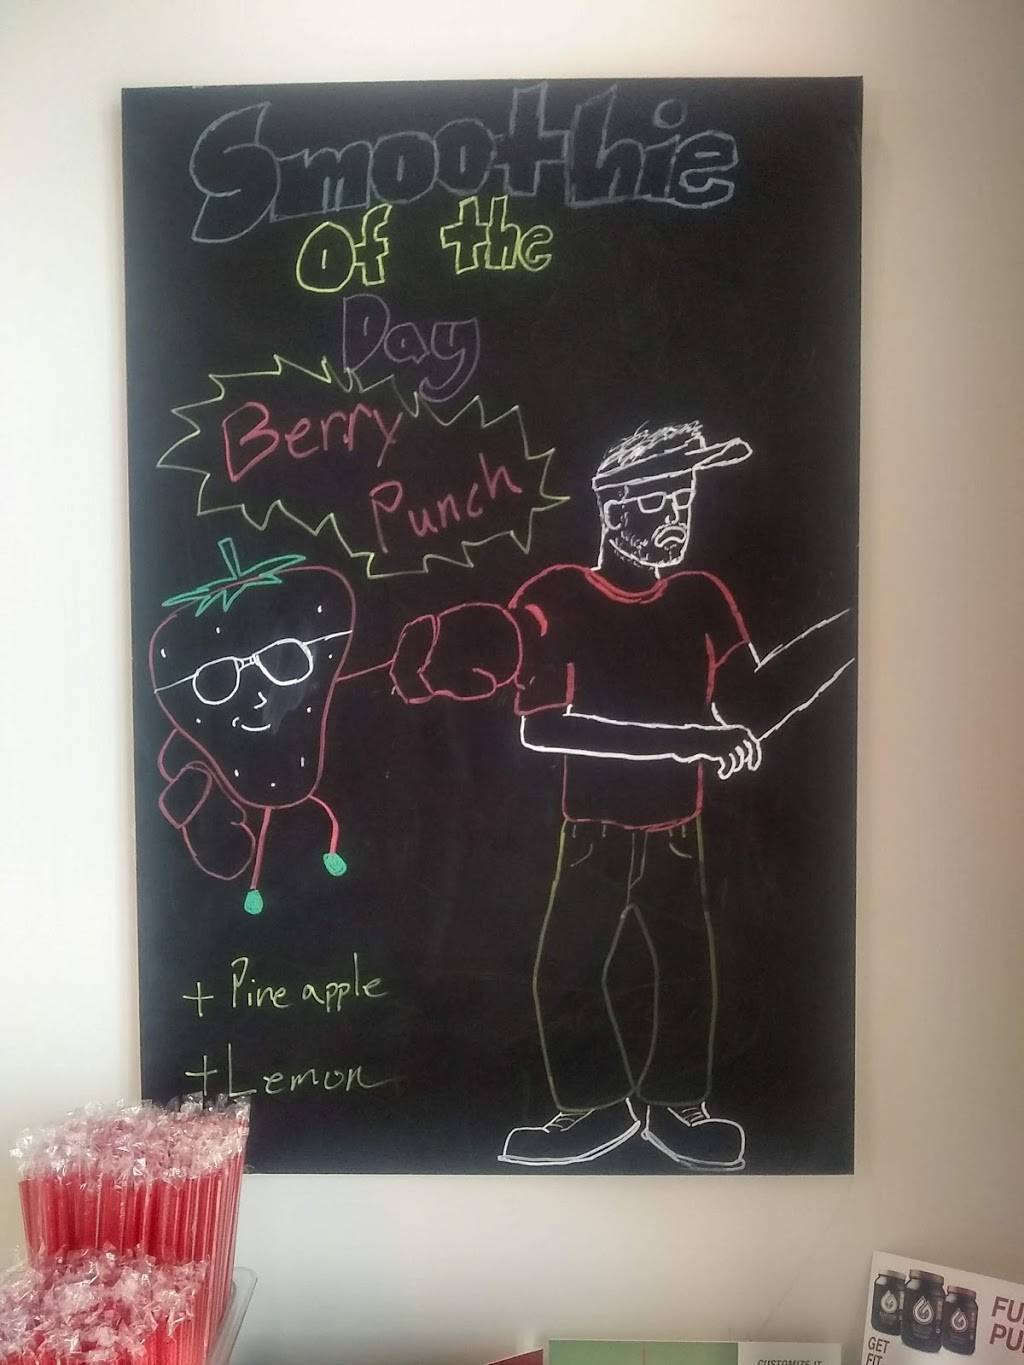 Smoothie
Of the
Day
Berry
Punch
+ Pineapple
+ Lemon
GET
FIT
CUSTOMIZE IT